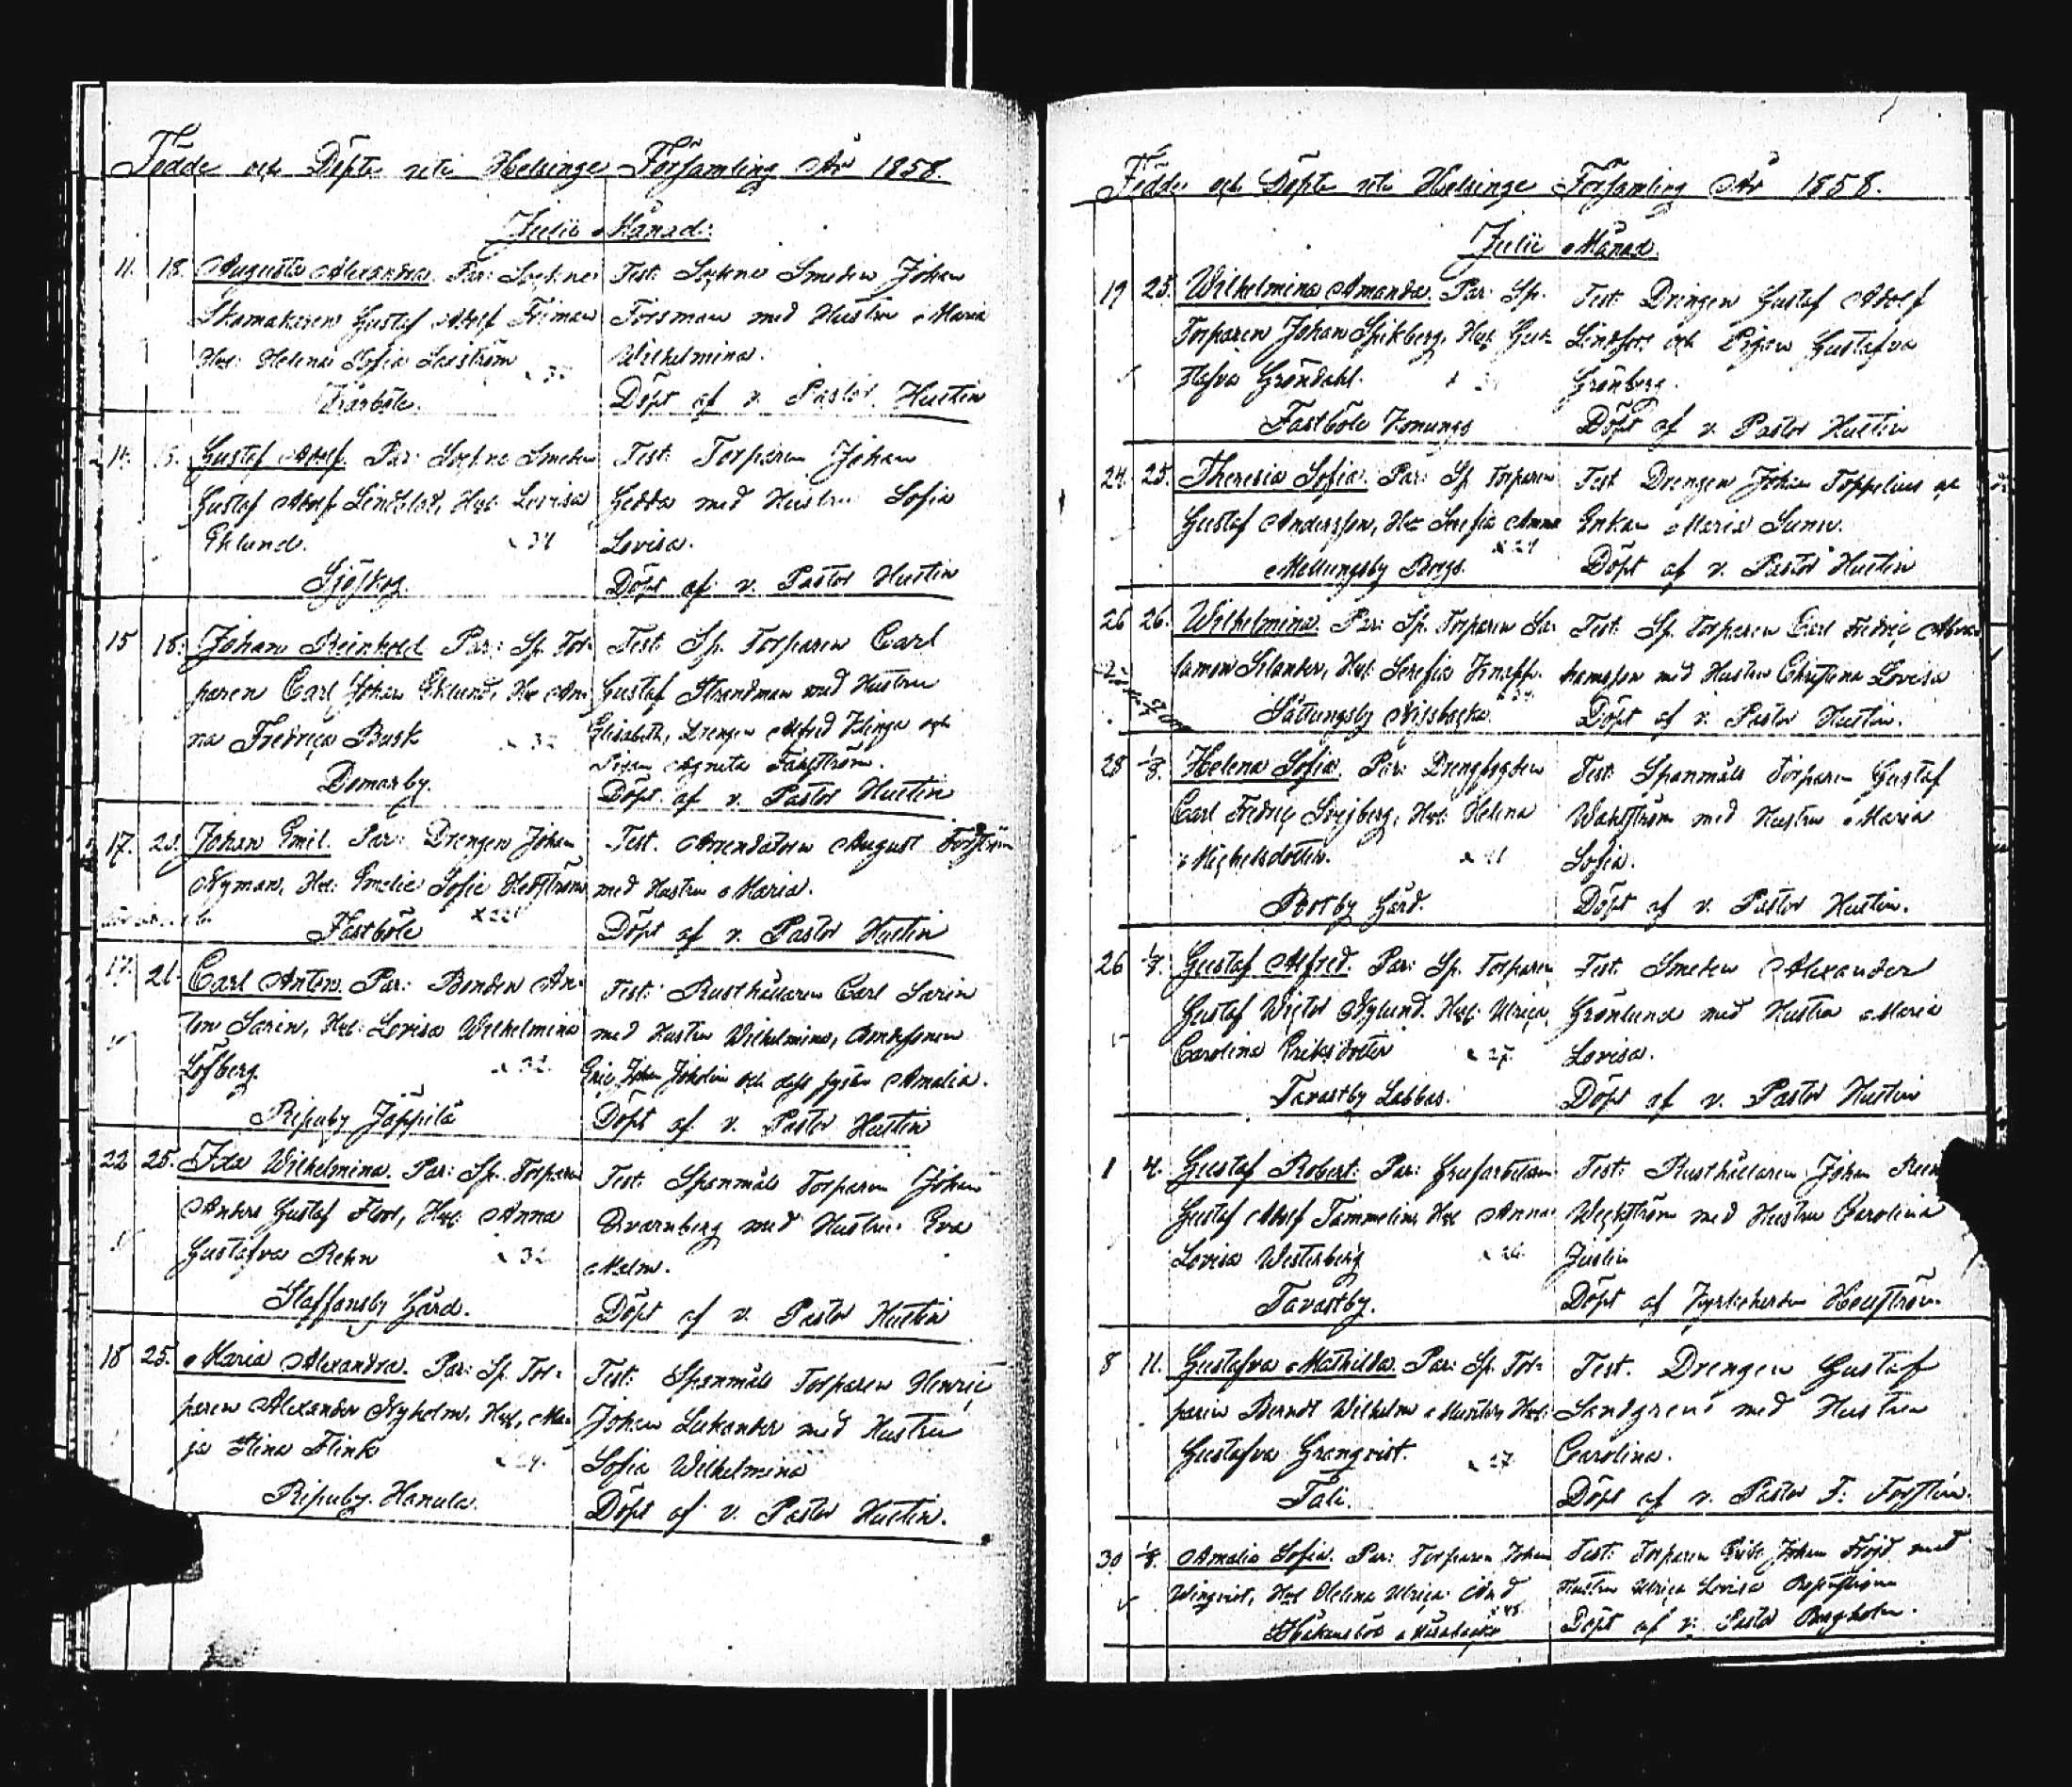 Födde och Döpte uti Helsinge Församling År 1858.
Julii Månad.
11. 18. Augusta Alexandra. Par: Sockne
Skomakaren Gustaf Adolf Friman
Hu: Helena Sofia
Test: Sockne Smeden Johan
Forsman med Hustru Maria
Wilhelmina.
Döpt af v. Pastor Hustin
Gustaf Adolf. Par: Sockne Smeden
Gustaf Adolf Lindblad, Hu: Lovisa
Eklund. 34
Sjöskog.
Test: Torparen Johan
Gedda med Hustru Sofia
Lovisa.
Döpt af v. Pastor Hustin
15 18. Johan Reinhold Par: Sp. Tor-
paren Carl Johan Eklund, Hu An-
na Fredrica Busk 32
Domarby.
Test: Sp. Torparen Carl
Gustaf Strandman med Hustru
Elisabeth, Drengen Alfred Klinga och
Pigan Agneta
Döpt af v. Pastor Hustin
17. Johan Emil. Par: Drengen Johan
Nyman, Hu: Emelie Sofie Hedström
Fastböle
Test. Arrendatorn August
med Hustru Maria.
Döpt af v. Pastor Hustin
17. 21. Carl Anton. Par: Bonden An-
ton Sarin, Hu: Lovisa Wilhelmina
Löfberg. 32.
Ripuby Jäppilä
Test: Rusthållaren Carl Sarin
med Hustru Wilhelmina, Bondesonen
Eric Johan och dess syster Amalia.
Döpt af v. Pastor Hustin
22 25. Ida Wilhelmina. Par: Sp. Torparen
Anders Gustaf Hu: Anna
Gustafva Rehn 32
Staffansby Gård.
Test: Spanmåls Torparen Johan
Qvarnberg med Hustru Eva
Malm.
Döpt af v. Pastor Hustin
18 25. Maria Alexandra. Par: Sp. Tor-
paren Alexander Nyholm, Hu: Ma-
ja Stina Flink
Ripuby Hanula.
Test: Spanmåls Torparen Henric
Johan Lukander med Hustru
Sofia Wilhelmina
Döpt af v. Pastor Hustin.
Födde och Döpte uti Helsinge Församling År 1858.
Julii Månad.
19 25. Wilhelmina Amanda. Par: Sp.
Torparen Johan Spikberg, Hu: Gus-
tafva Gröndahl.
Fastböle Konungs
Test: Drengen Gustaf Adolf
Lindfors och Pigan Gustafva
Grönberg.
Döpt af v. Pastor Hustin
24. 25. Theresia Sofia. Par: Sp Torparen
Gustaf Andersson, Hu: Serafia Anna
Mellungsby Borgs.
Test Drengen Johan Toppelius och
Enkan Maria
Döpt af v. Pastor Hustin
26 26. Wilhelmina. Par: Sp. Torparen Sa-
lamon Silander, Hu: Serafia
Sottungsby Nissbacka.
Test: Sp. Torparen Carl Fredric Abra-
hamsson med Hustru Christina Lovisa
Döpt af v. Pastor Hustin.
28 1/8. Helena Sofia. Par: Drengfogden
Carl Fredric Hu: Helena
Michelsdotter.
Botby Gård.
Test: Spanmåls Torparen Gustaf
Wahlström med Hustru Maria
Sofia.
Döpt af v. Pastor Hustin.
26 Gustaf Alfred. Par: Sp. Torparen
Gustaf Wictor Nylund. Hu: Ulrica
Carolina Eriksdotter 27.
Tavastby Labbas.
Test: Smeden Alexander
Grönlund med Hustru Maria
Lovisa.
Döpt af v. Pastor Hustin
1 4. Gustaf Robert. Par:
Gustaf Adolf Tammelin, Hu: Anna
Lovisa Westerberg
Tavastby.
Test: Rusthållaren Johan
Weckström med Hustru Carolina
Justin
Döpt af Kyrkoherden
8 11. Gustafva Mathilda. Par: Sp. Tor-
paren Berndt Wilhelm Hu:
Gustafva Granqvist. 27
Tali.
Test. Drengen Gustaf
Sandgren med Hustru
Carolina.
Döpt af v. Pastor F: Forstén.
30 1/8. Amalia Sofia. Par: Torparen Johan
Winqvist, Hu: Helena Ulrica
Håkansböle
Test: Torparen Erik Johan Fröjd med
Hustru Ulrica Lovisa
Döpt af v. Pastor Bergholm.